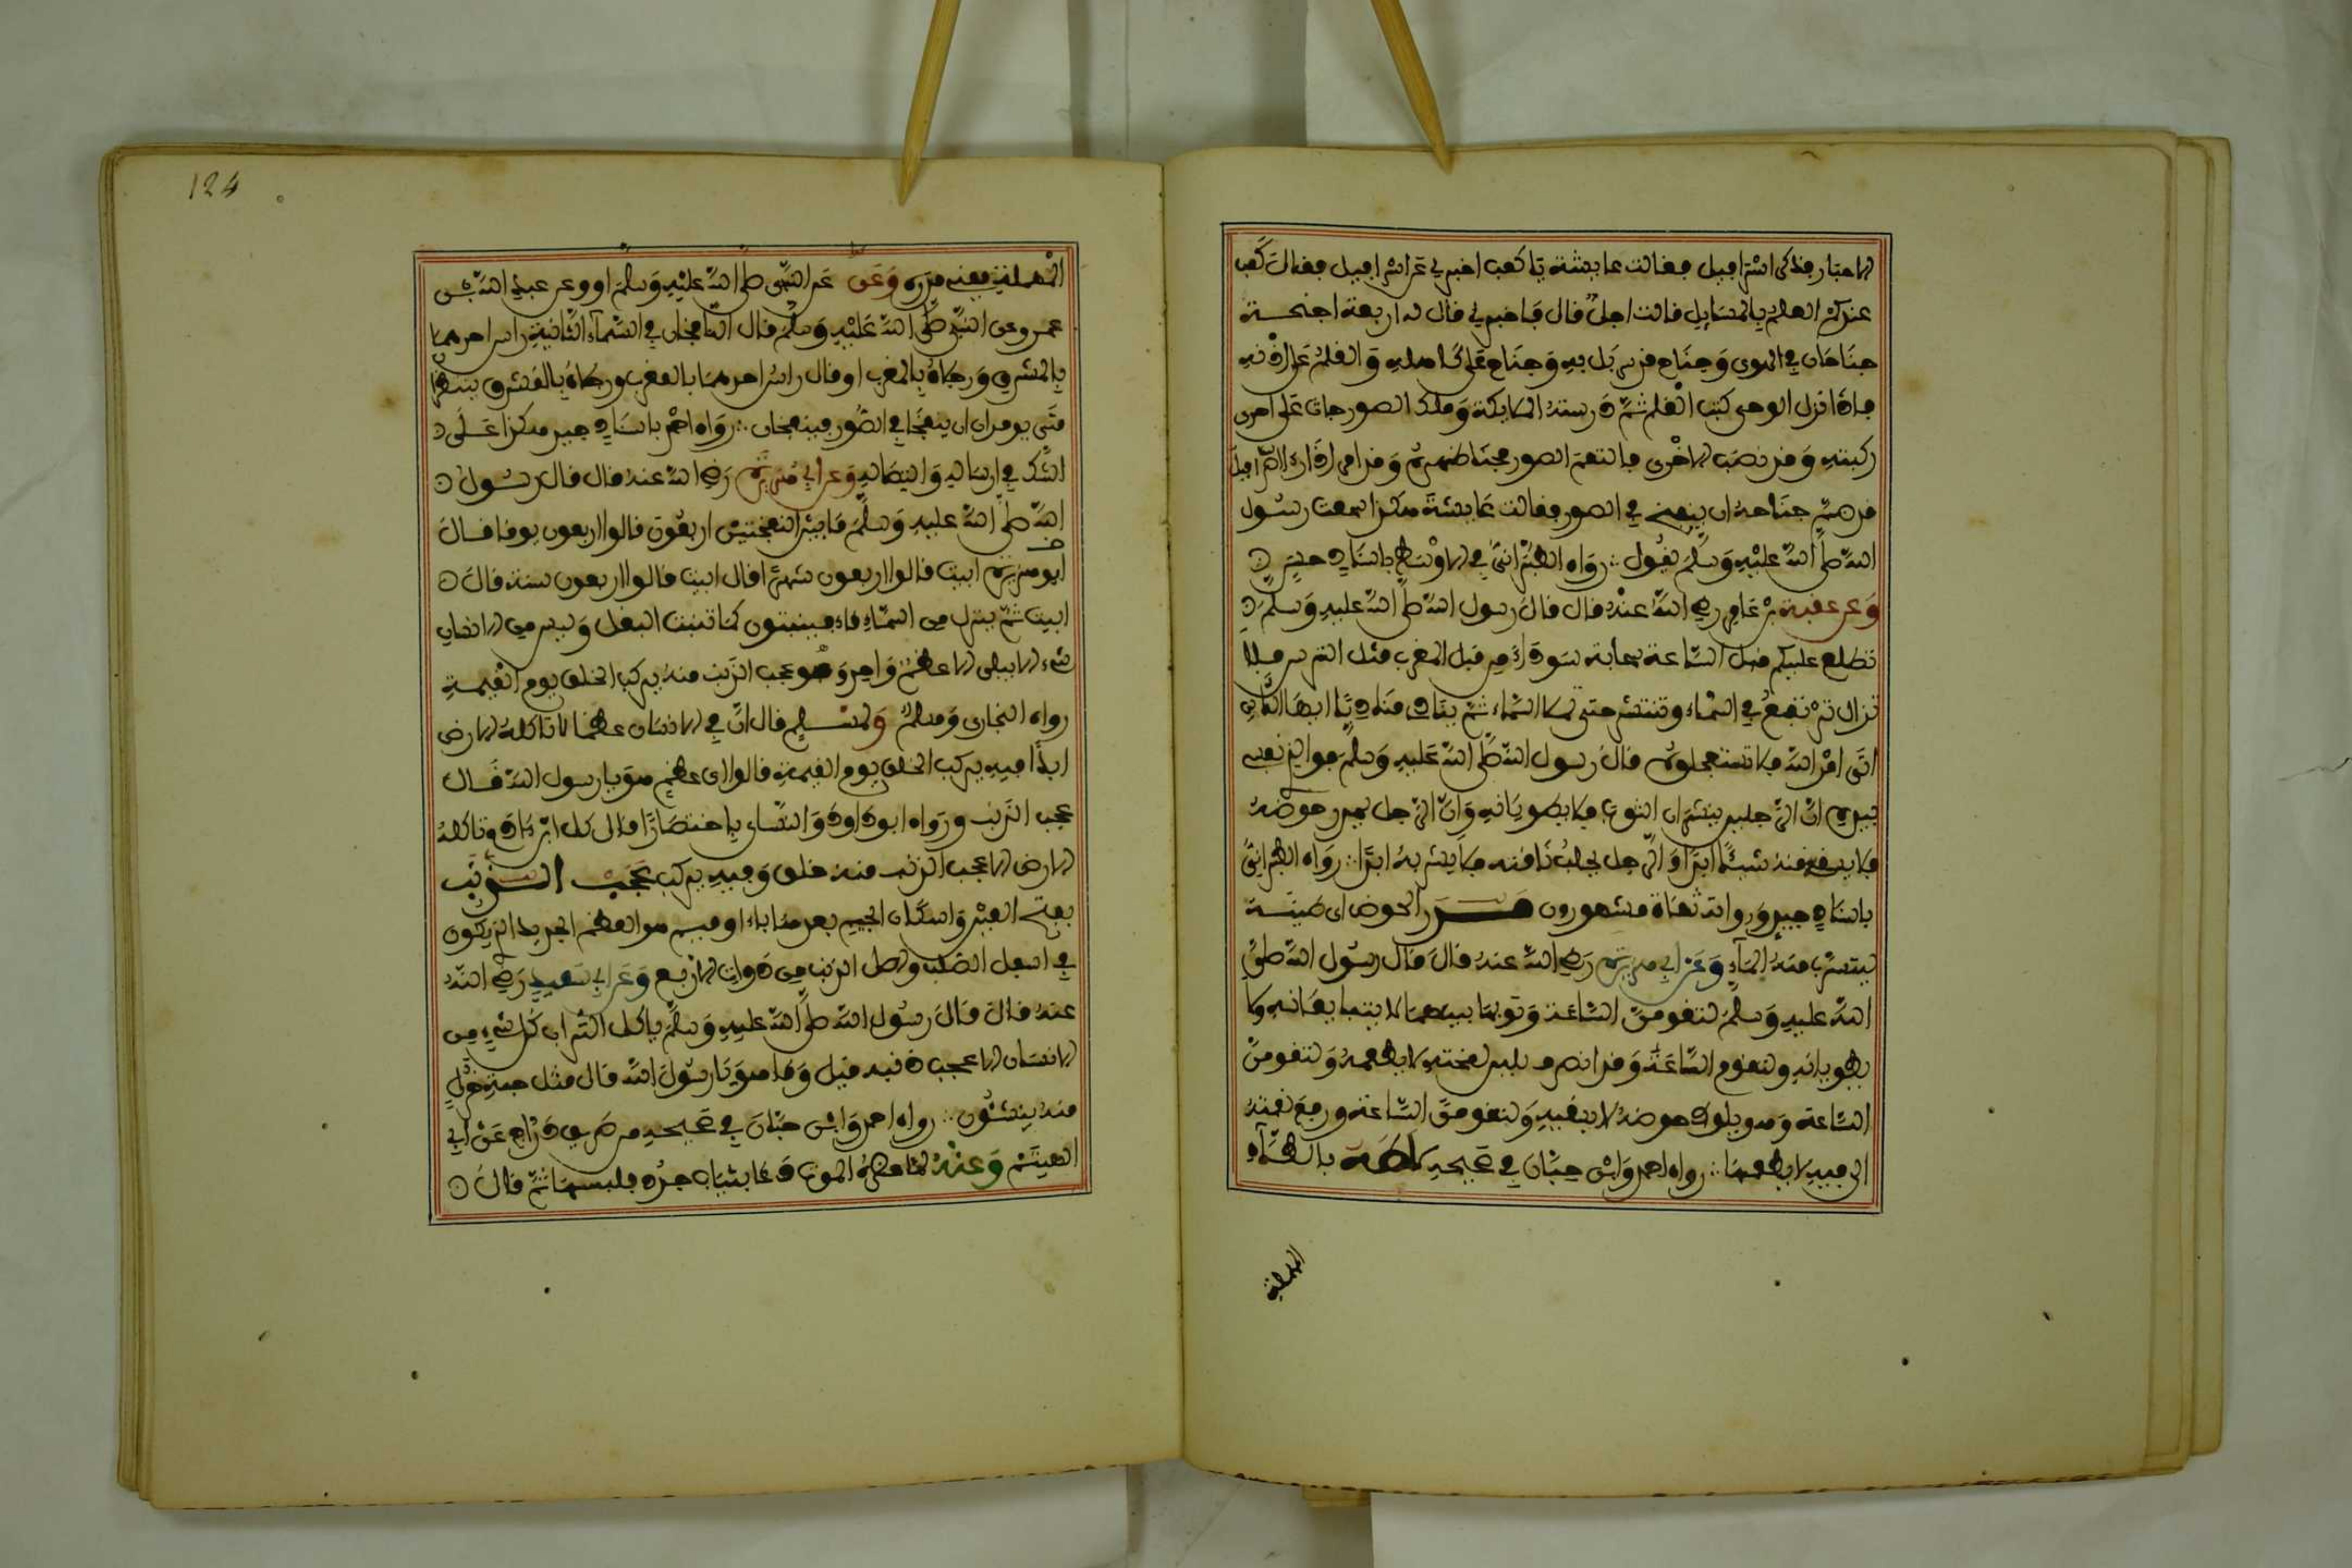 الاحبار فذكر اسرافيل فقالت عايشة يا كعب اخبرني عن اسرافيل فقال كعب
عندكم العلم قالت اجل قال فاخبرني قال له اربعة اجنحة
جناحان في الهوى وجناح قد تسربل به وجناح على كاهله والقلم على اذنه
فاذا نزل الوحي كتب القلم ثم درست الملايكة وملك الصور جاث على احدى
ركبتيه وقد نصب الاخرى فالتقم الصور محنا ظهره وقد امر اذا راى اسرافيل
قد ضم جناحه ان ينفخ في الصور فقالت عايشة هكذا سمعت رسول
الله صلى الله عليه وسلم يقول رواه الطبراني في الاوسط باسناد حسن
وعن عقبة بن عامر رضي الله عنه قال قال رسول الله صلى الله عليه وسلم
تطلع عليكم قبل الساعة سحابة سوداء من قبل المغرب مثل الترس فلا
تزال ترتفع في السماء وتنتشر حتى تملا السماء ثم ينادي مناد يا ايها الناس
اتى امر الله فلا تستعجلوه قال رسول الله صلى الله عليه وسلم فوالذي نفسي
بيده ان الرجلين ينشران الثوب فلا يطويانه وان الرجل ليمدر حوضه
فلا يسقي منه شيئا ابدا والرجل يحلب ناقته فلا يشربه ابدا رواه الطبراني
باسناد جيد ورواته ثقاة مشهورون مدر الحوض اي طينه
ليتسرب منه الماء وعن ابي هريرة رضي الله عنه قال قال رسول الله صلى
الله عليه وسلم لتقومن الساعة وثوبهما بينهما لا يتبايعانه ولا
يطويانه ولتقوم الساعة وقد انصرف بلبن لقحته لا يطعمه ولتقومن
الساعة وهو يلوط حوضه لا يسقيه ولتقومن الساعة ورفع لقمته
الى فيه لا يطعمها رواه احمد وابن حبان في صحيحه لاطه بالطاء
المهملة
124
المهملة بمعنى مدره وعن عن النبي صلى الله عليه وسلم او وعن عبد الله بن
عمرو عن النبي صلى الله عليه وسلم قال النافخان في السماء الثانية راس احدهما
بالمشرق ورجلاه بالمغرب او قال راس احدهما بالمغرب ورجلاه بالمشرق ينتظران
متى يومران ان ينفخا في الصور فينفخان رواه احمد باسناد جيد هكذا على
الشك في ارساله واتصاله وعن ابي هريرة رضي الله عنه قال قال رسول
الله صلى الله عليه وسلم ما بين النفختين اربعون قالوا اربعون يوما قال
ابو هريرة ابيت قالوا اربعون شهرا قال ابيت قالوا اربعون سنة قال
ابيت ثم ينزل من السماء ماء فينبتون كما تنبت البقل وليس من الانسان
شيء الا يبلى الا عظم واحد وهو عجب الذنب منه يركب الخلق يوم القيمة
رواه البخاري ومسلم ولمسلم قال ان في الانسان عظما لا تاكله الارض
ابدا فيه يركب الخلق يوم القيمة قالوا اي عظم هو يا رسول الله قال
عجب الذنب ورواه ابو داود والنساي باختصار قال كل ابن ءادم تاكله
الارض الا عجب الذنب منه خلق وفيه يركب عجب الذنب
بفتح العين واسكان الجيم بعدها باء او ميم هو العظم الحديد الذي يكون
في اسفل الصلب واصل الذنب من ذوات الاربع وعن ابي سعيد رضي الله
عنه قال قال رسول الله صلى الله عليه وسلم ياكل التراب كل شيء من
الانسان الا عجب ذنبه قيل وما هو يا رسول الله قال مثل حبة خردل
منه ينشئون رواه احمد وابن حبان في صحيحه من طريق دراج عن ابي
الهيثم وعنه لما حضره الموت دعا بثياب جدد فلبسها ثم قال